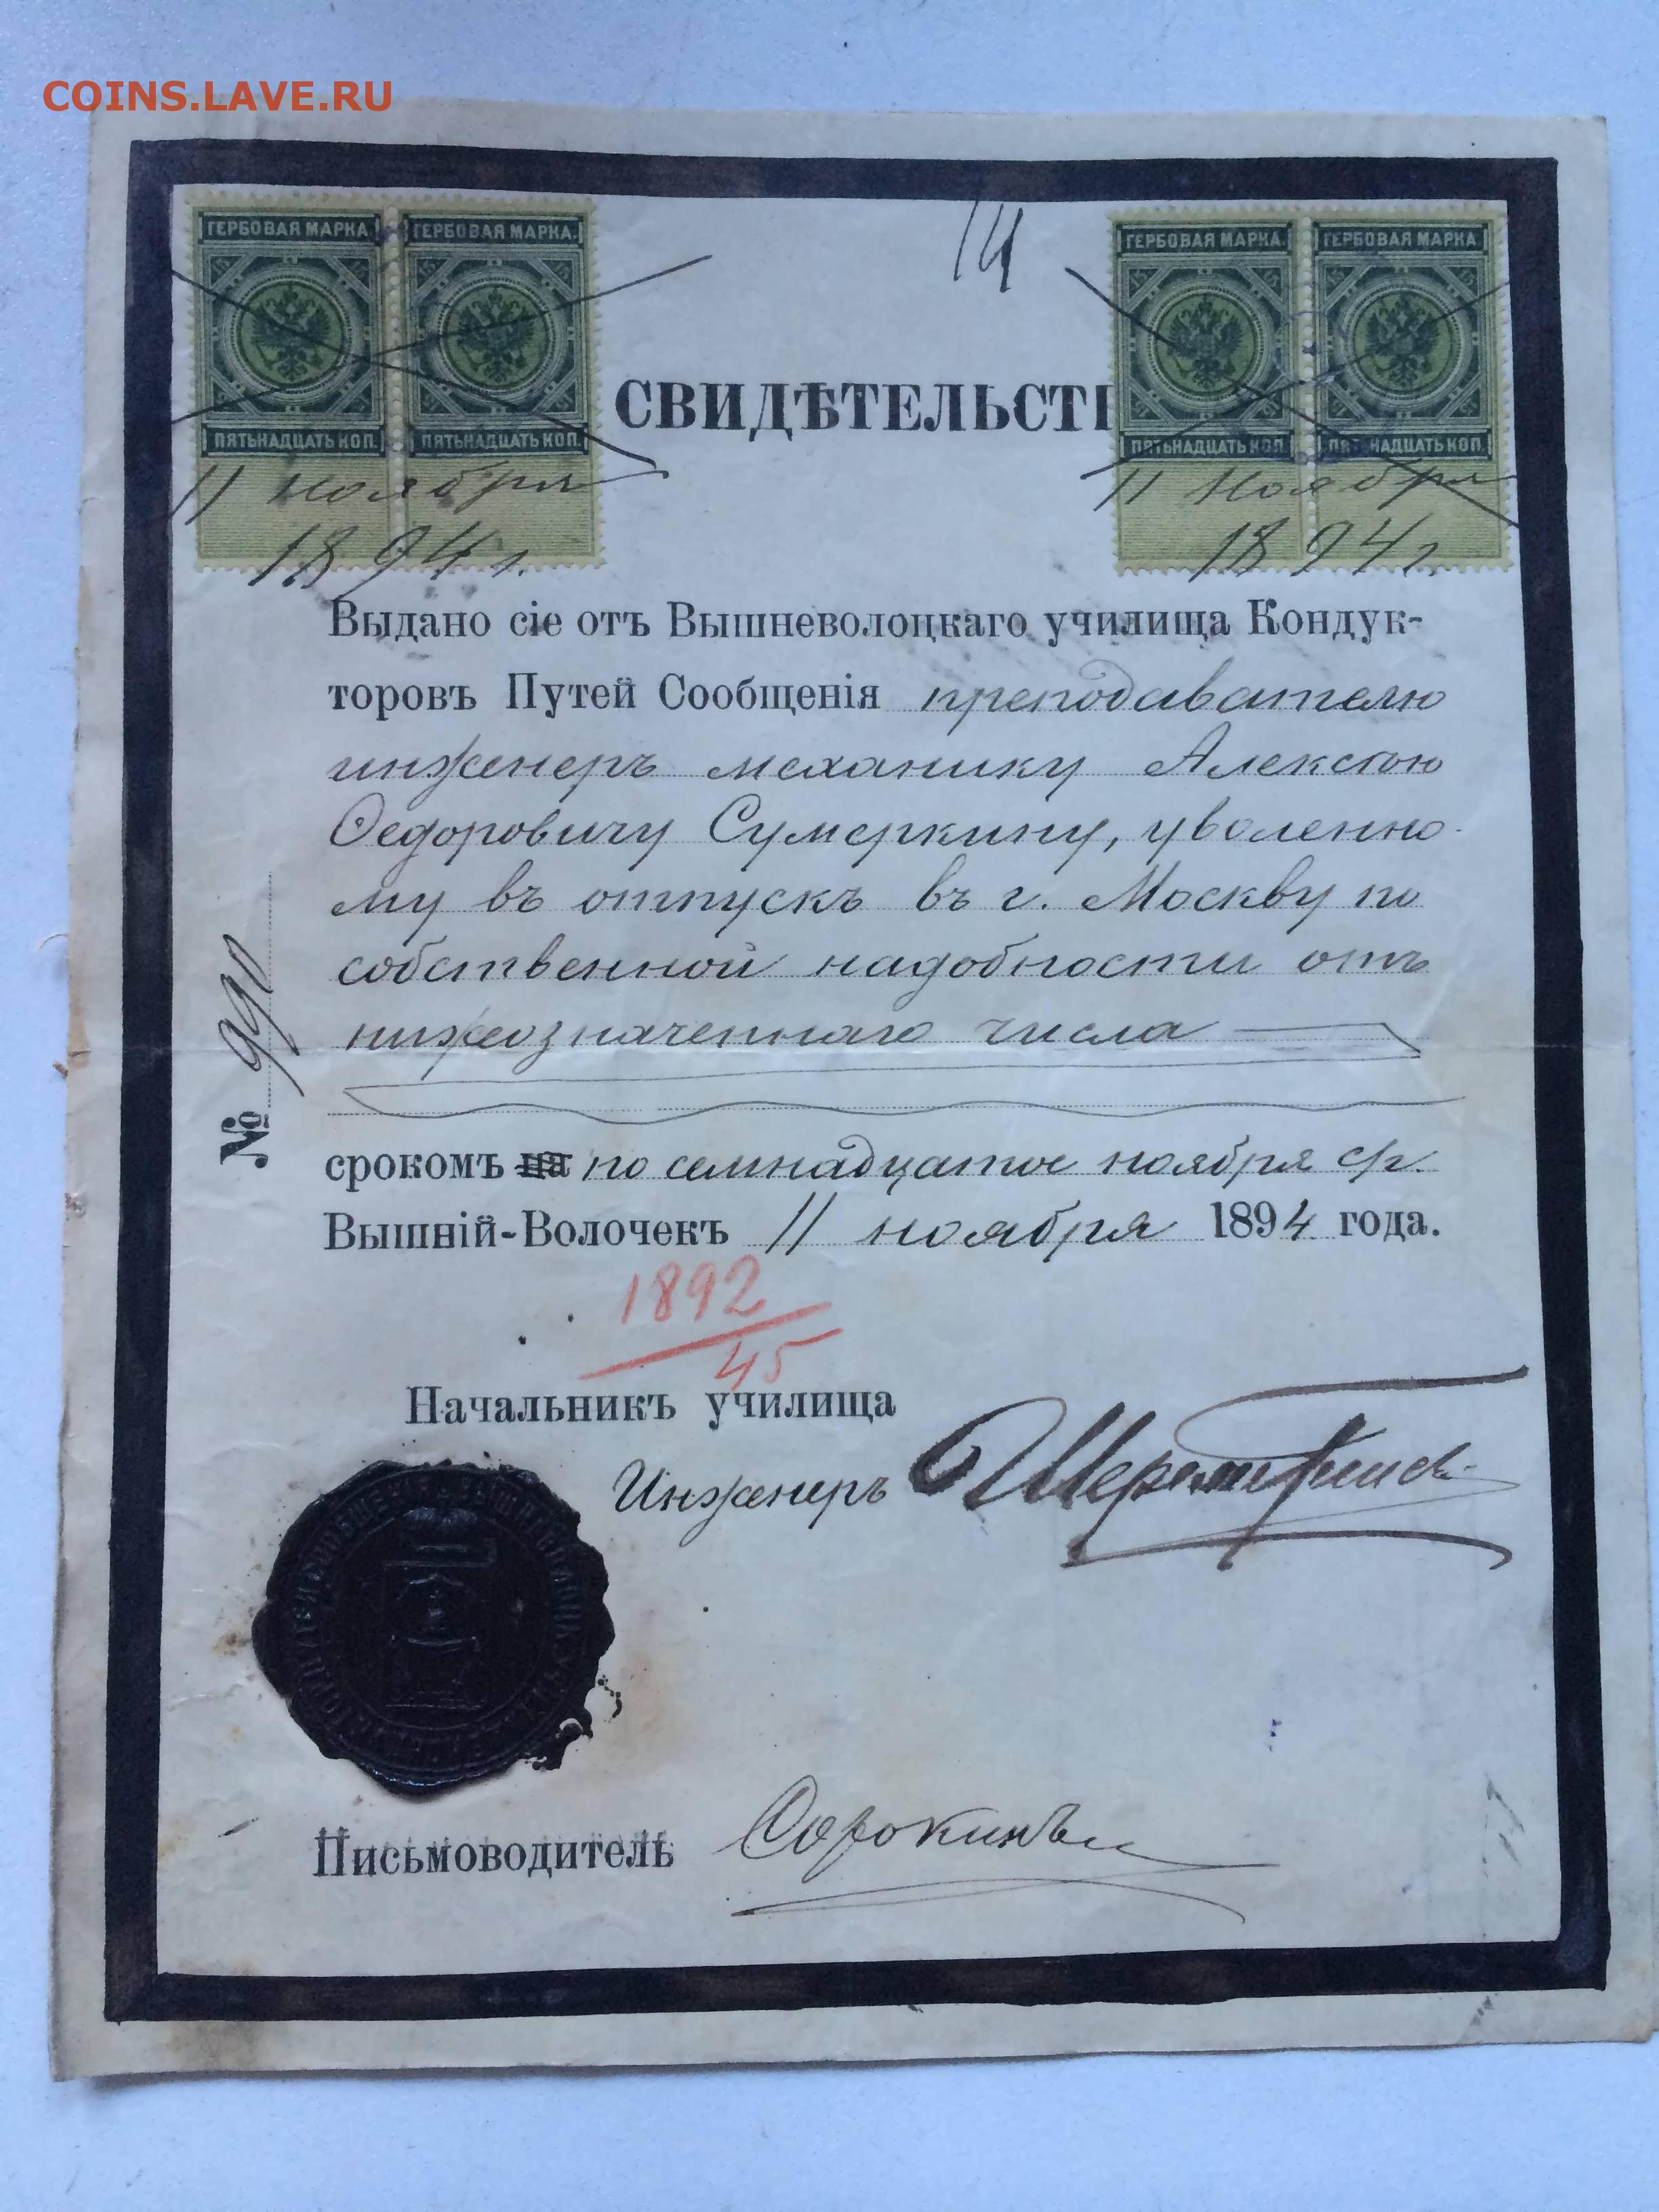 COINS.LAVE.RU
ГЕРБОВАЯ МАРКА. ГЕРБОВАЯ МАРКА.
ПЯТЬНАДЦАТЬ КОП. ПЯТЬНАДЦАТЬ КОП.
11 ноября
1894 г.
14
ГЕРБОВАЯ МАРКА. ГЕРБОВАЯ МАРКА
ПЯТЬНАДЦАТЬ КОП. ПЯТЬНАДЦАТЬ КОП.
11 Ноября
1894 г.
СВИДѢТЕЛЬСТ
Выдано сіе отъ Вышневолоцкаго училища Кондук-
торовъ Путей Сообщенія преподавателю
инженеръ механику Алексѣю
Ѳедоровичу Сумеркину, уволенно-
му въ отпускъ въ г. Москву по
собственной надобности отъ
нижеозначеннаго числа
срокомъ на по семнадцатое ноября с/г.
Вышній-Волочекъ 11 ноября 1894 года.
№ 990
1892
45
Начальникъ училища
Инженеръ
Письмоводитель Сорокинъ